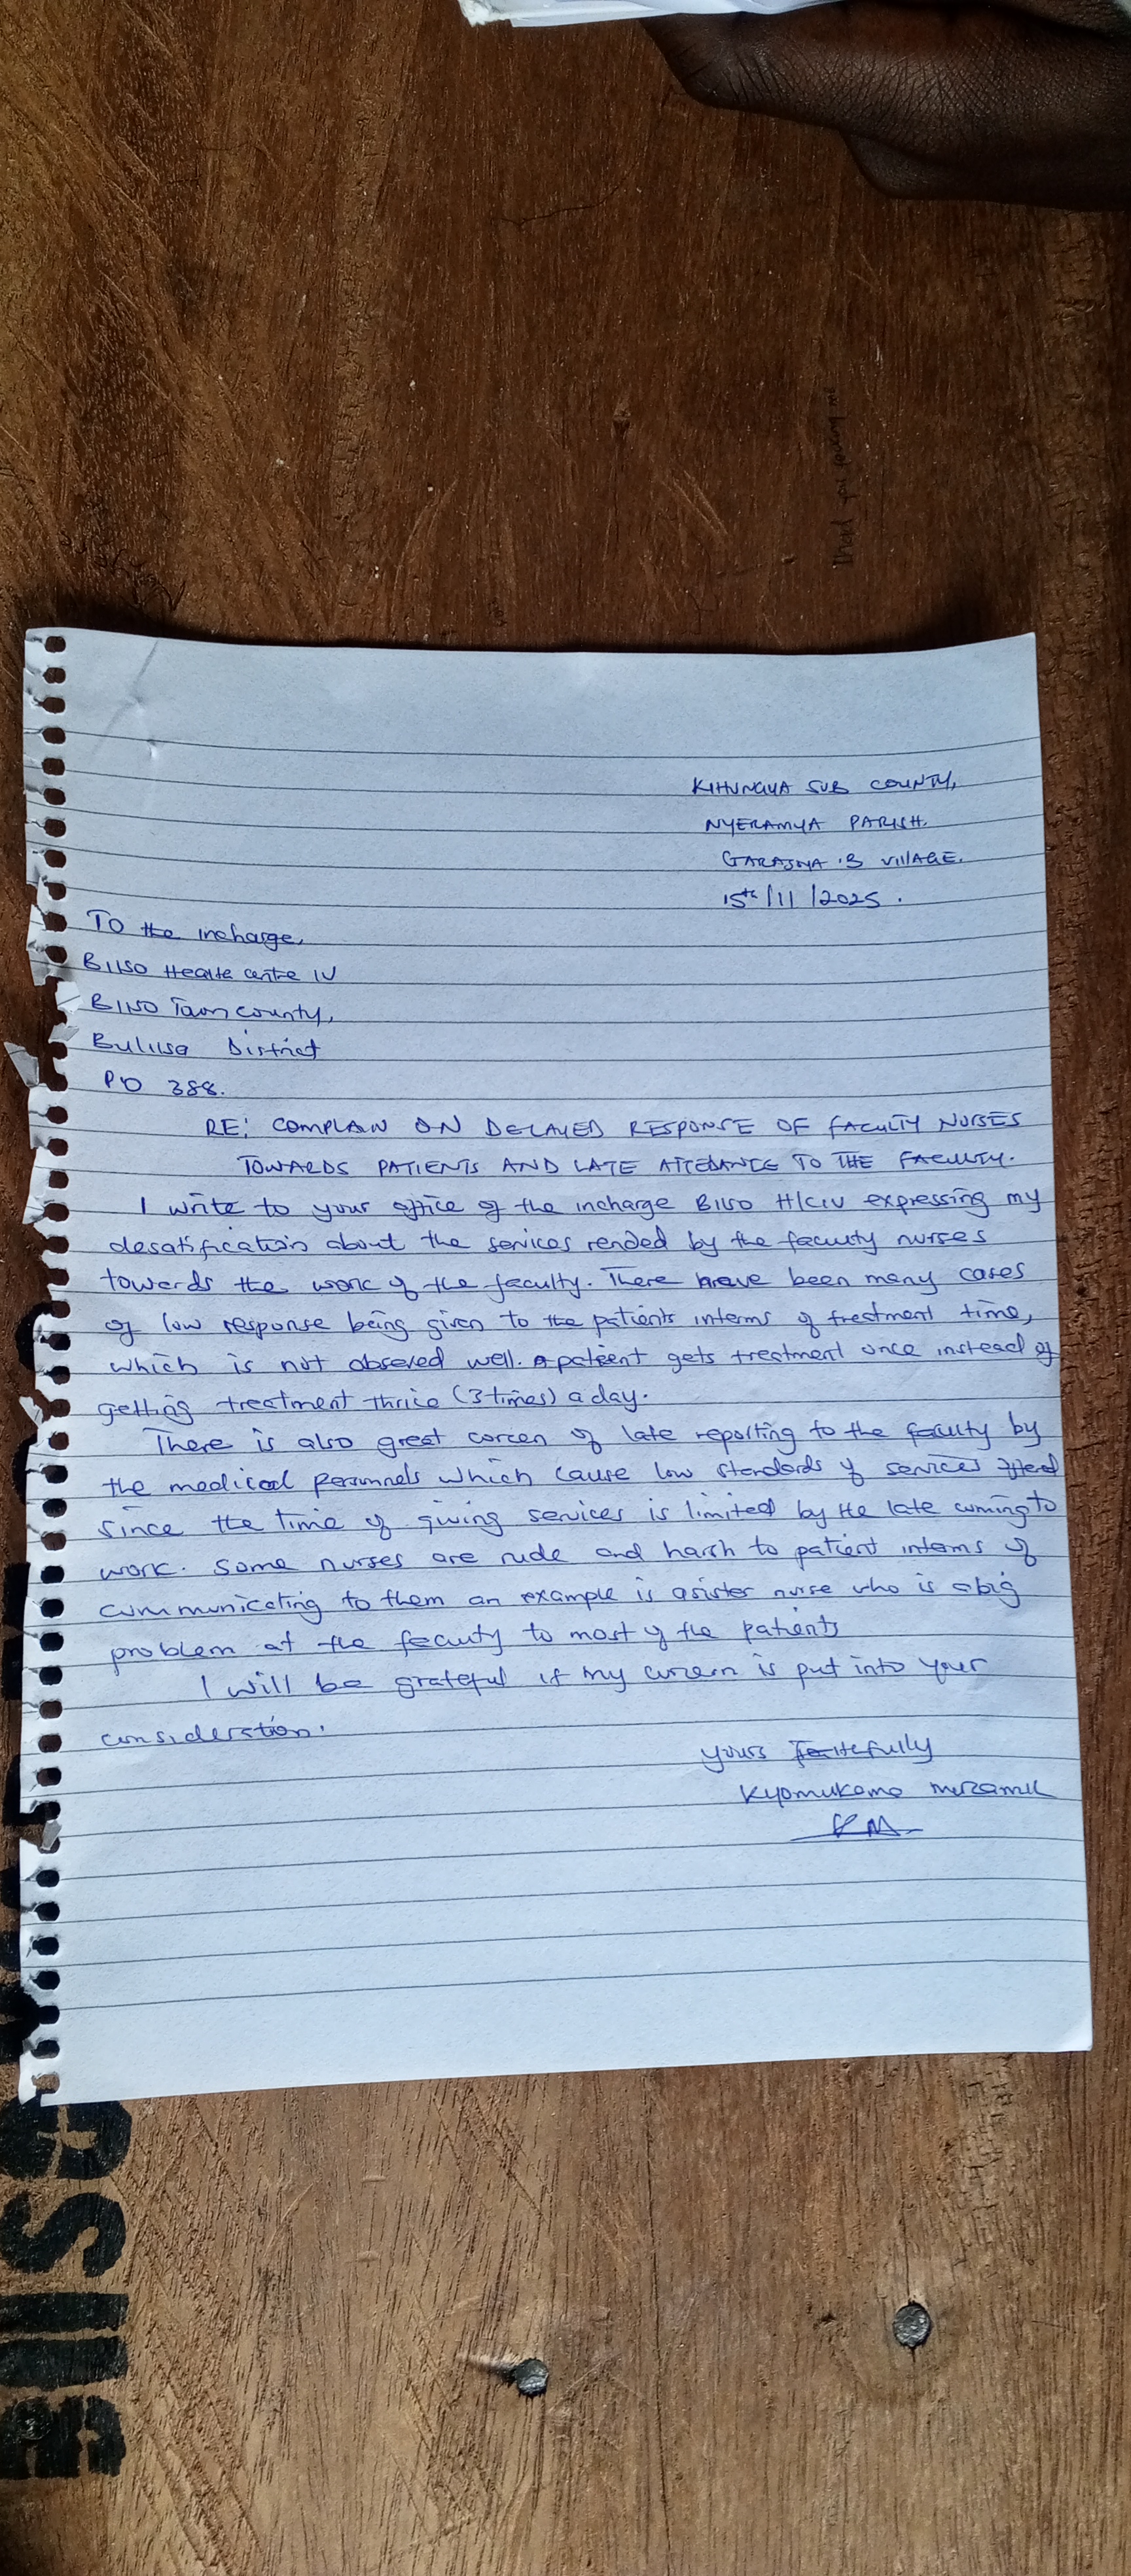 KIHUNGYA SUB COUNTY,
NYERAMYA PARISH.
GARASOYA 'B VILLAGE.
15th/11/2025.
To the incharge,
BIISO Health centre IV
BIISO Town county,
Buliisa District
PO 388.
RE: COMPLAIN ON DELAYED RESPONSE OF FACULTY NURSES
TOWARDS PATIENTS AND LATE ATTEDANCE TO THE FACULTY.
I write to your office of the incharge BIISO H/CIV expressing my
desatification about the services rended by the faculty nurses
towards the work of the faculty. There have been many cases
of low response being given to the patients interms of treatment time,
which is not obseved well. A patient gets treatment once instead of
getting treatment thrice (3 times) a day.
There is also great corcen of late reporting to the faculty by
the medical personnels which cause low standards of services offered
since the time of giving services is limited by the late coming to
work. Some nurses are rude and harsh to patient interms of
communicating to them an example is a sister nurse who is a big
problem at the facuty to most of the patients
I will be grateful if my concern is put into your
consideration.
Yours Faithfully
Kyomukama
KM